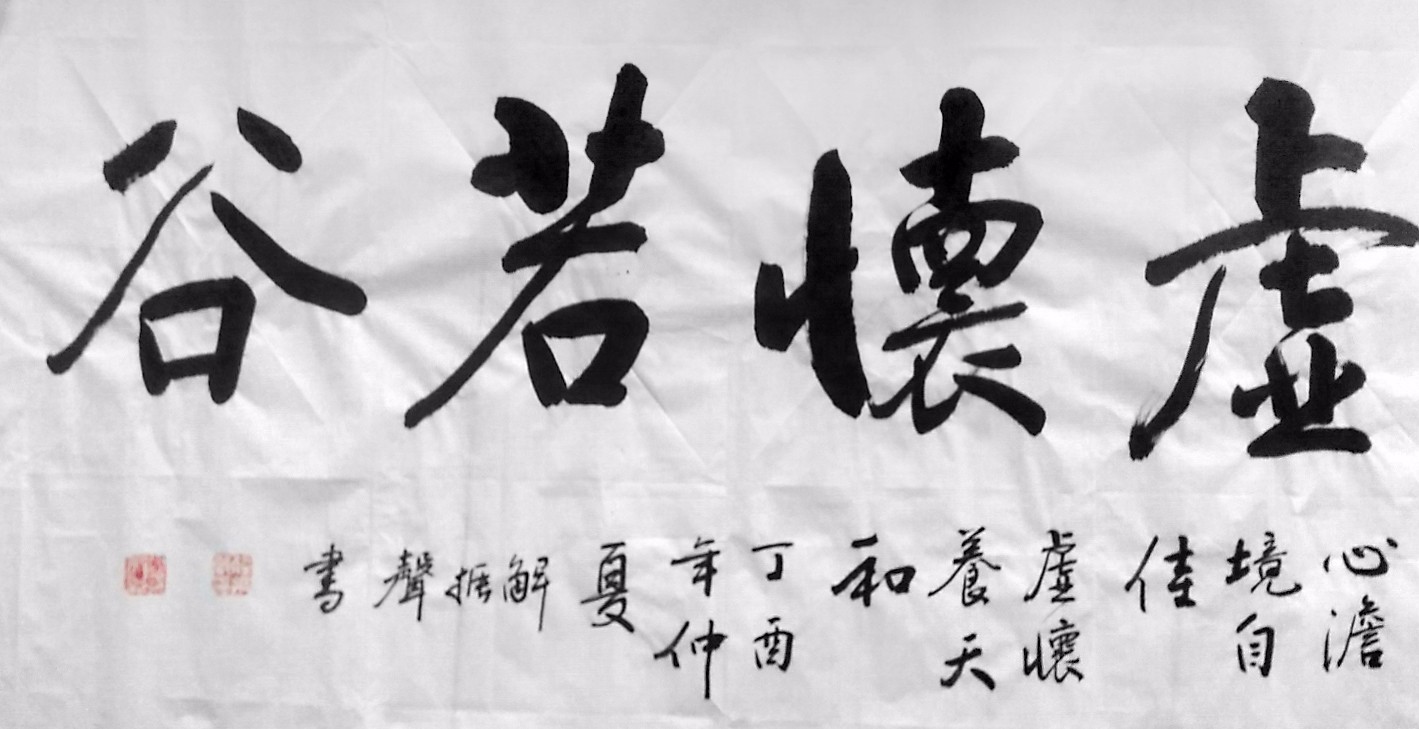 虚懷若谷
心澹
境自
佳
虚懷
養天
和
丁酉
年仲
夏
解
振
聲
書